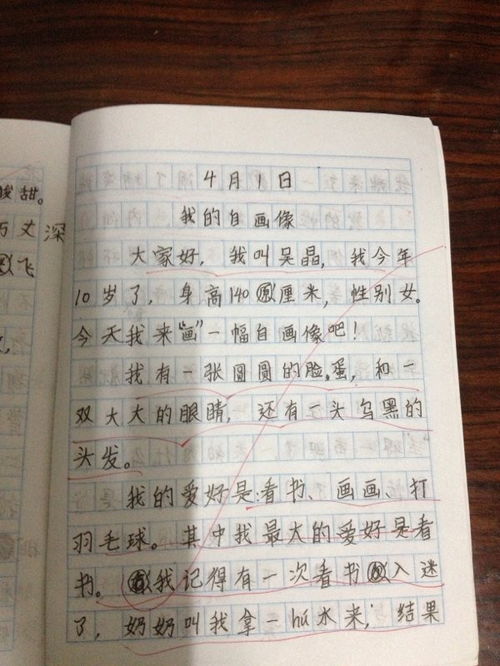 4月1日
我的自画像
大家好，我叫吴晶，我今年
10岁了，身高140厘米，性别女。
今天我来“画”一幅自画像吧！
我有一张圆圆的脸蛋，和一
双大大的眼睛，还有一头乌黑的
头发。
我的爱好是看书、画画、打
羽毛球。其中我最大的爱好是看
书。我记得有一次看书入迷
了，奶奶叫我拿一hú水来，结果
酸甜。
万丈深
飞